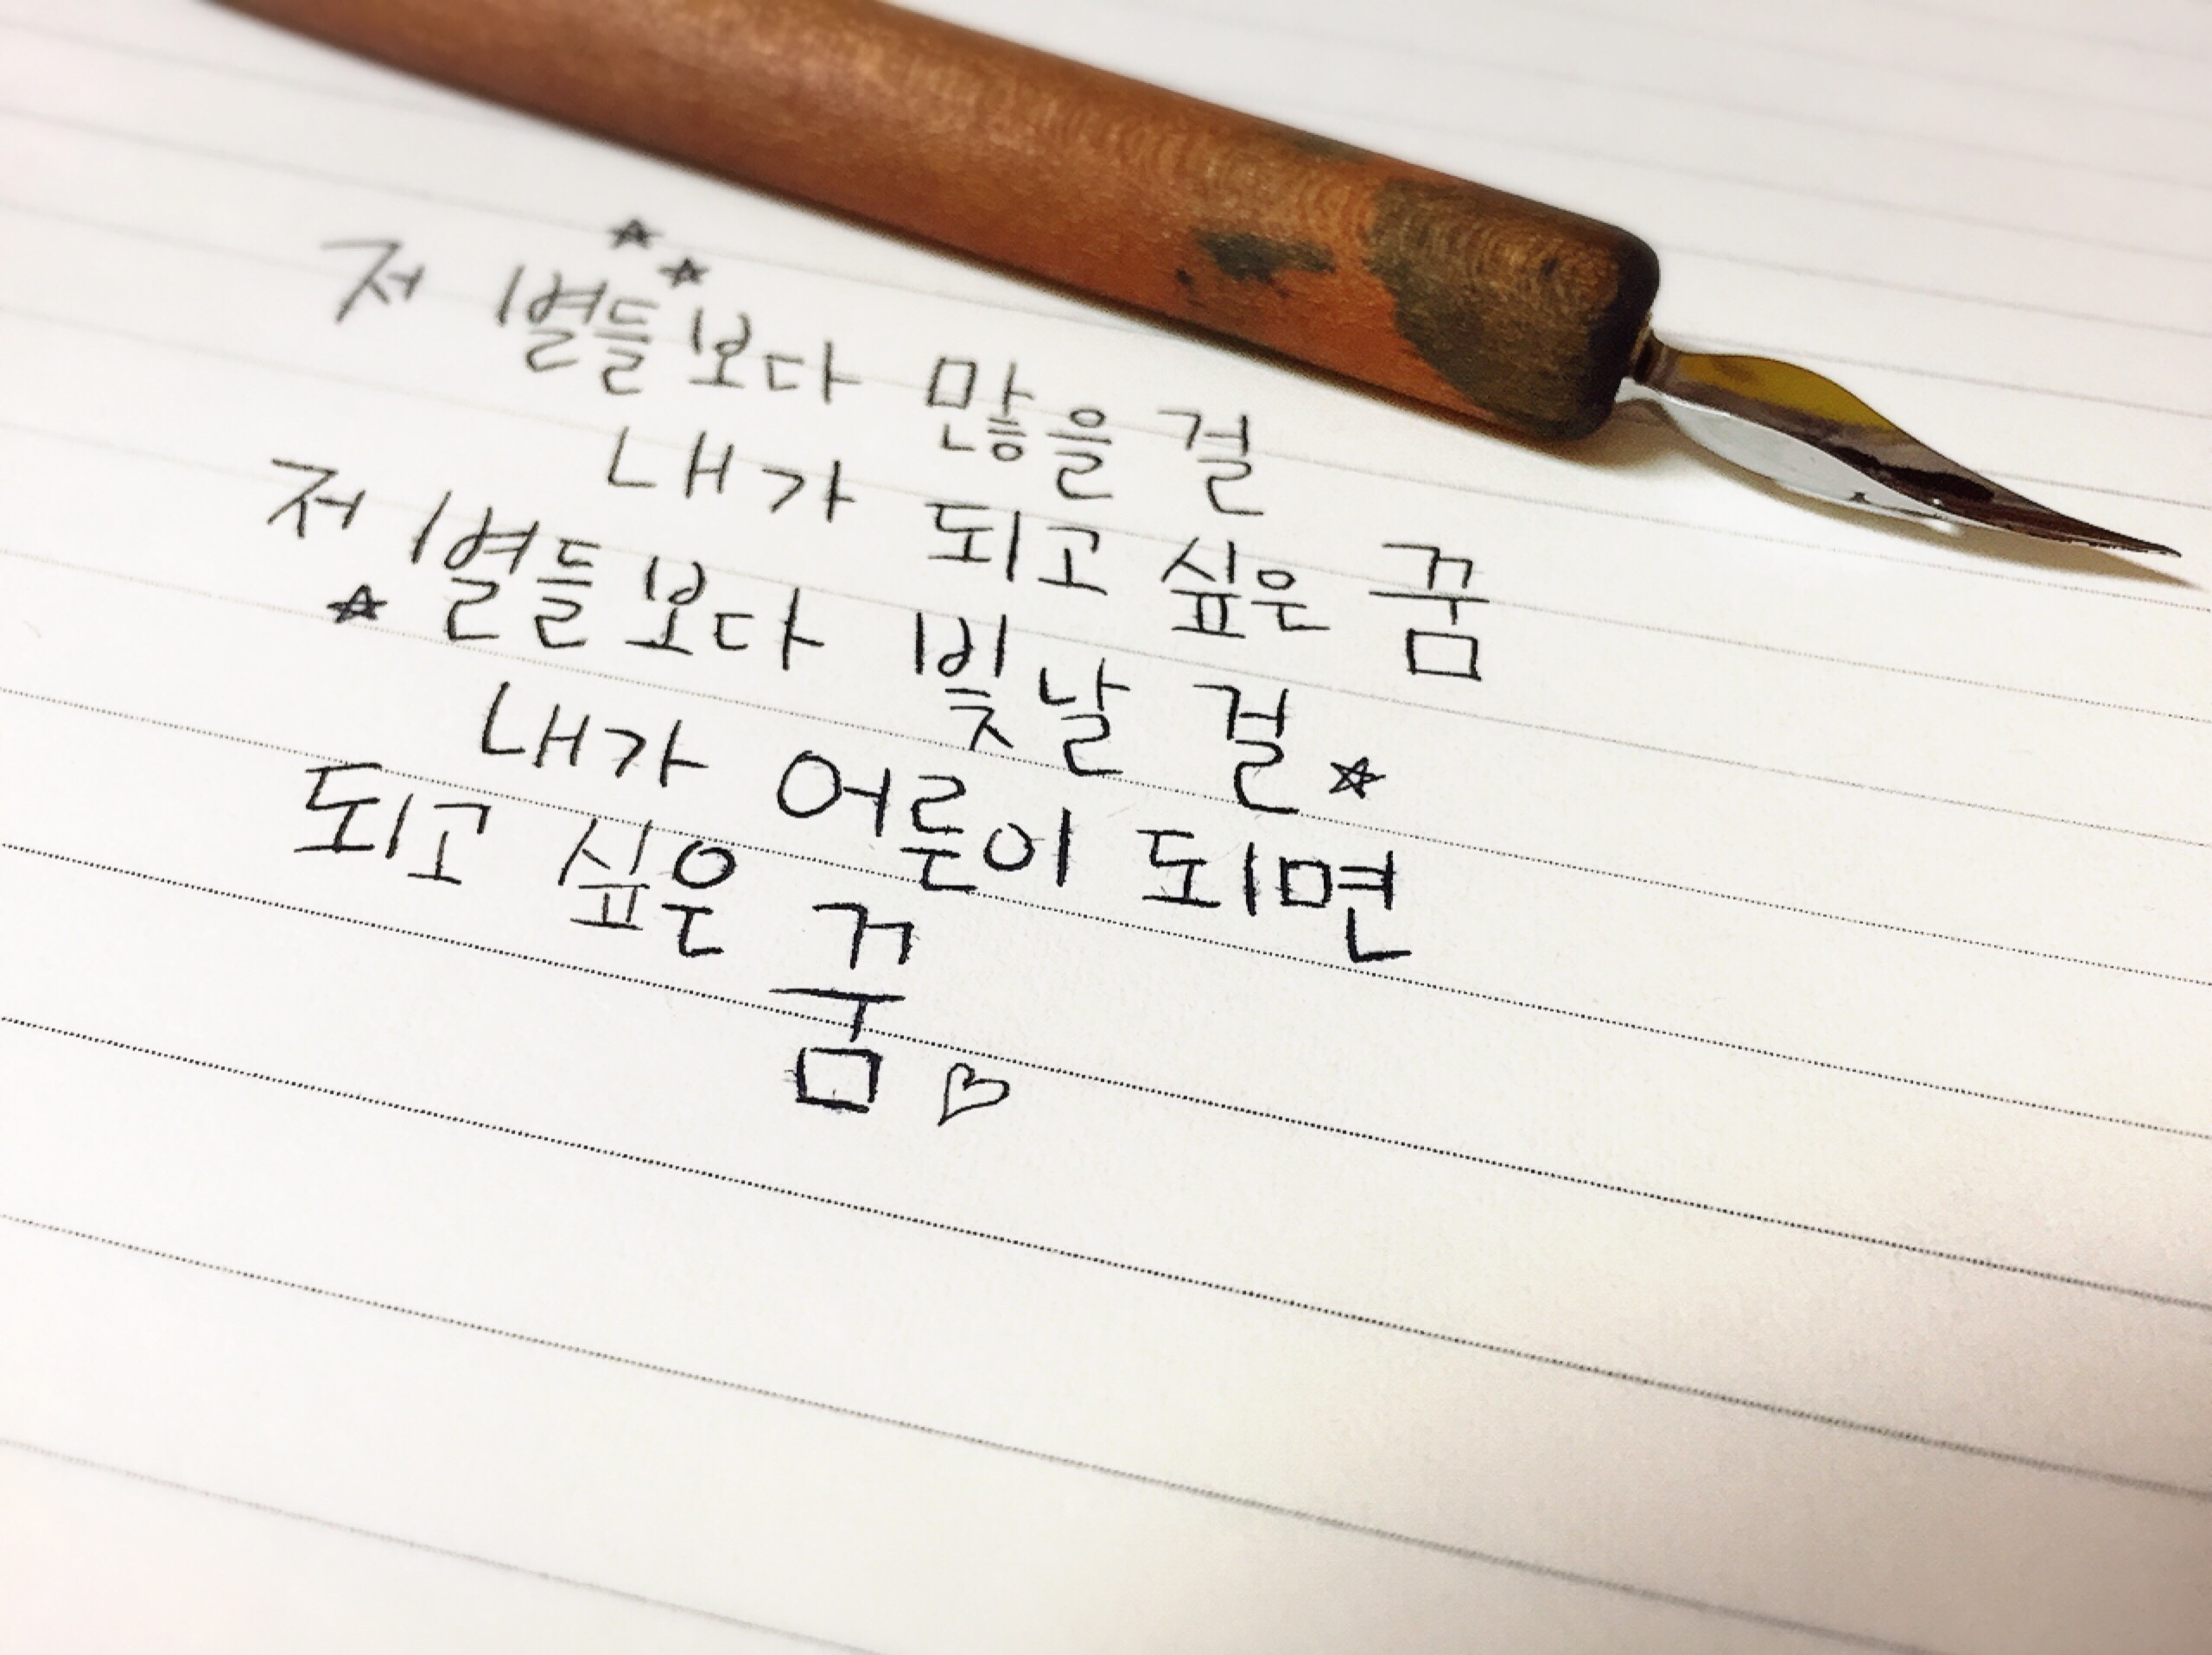 저 별들보다 많을 걸
내가 되고 싶은 꿈
저 별들보다 빛날 걸
내가 어른이 되면
되고 싶은 꿈